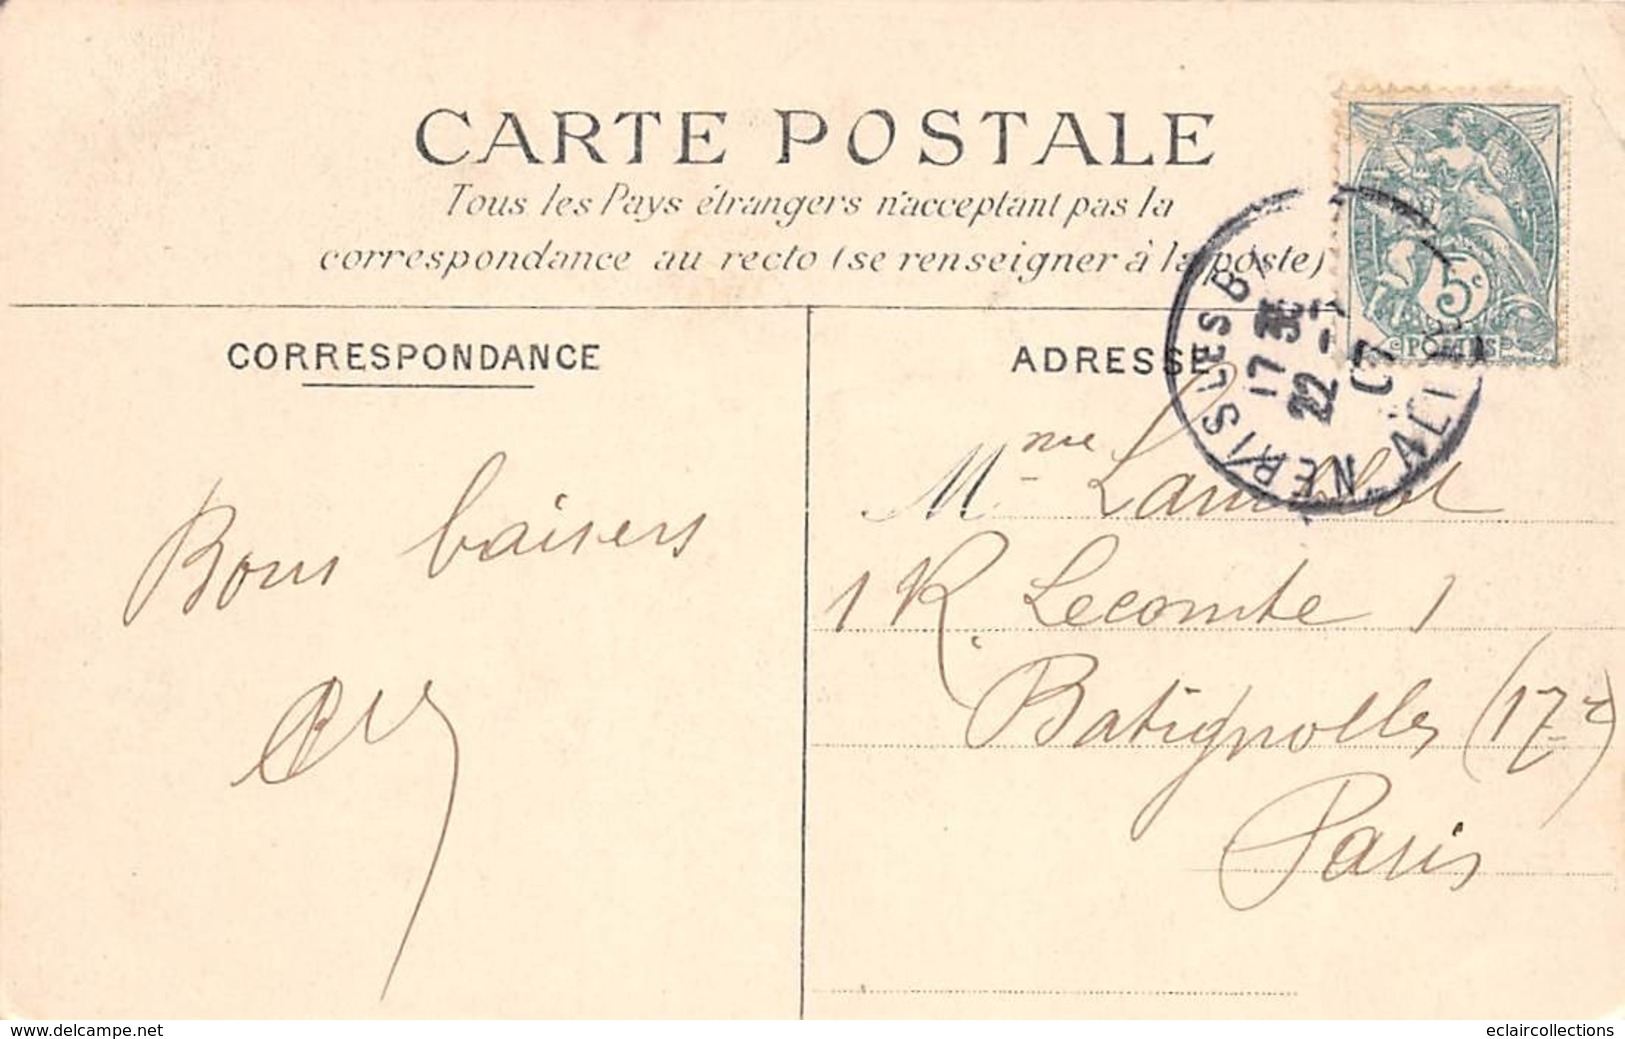 CARTE POSTALE
Tous les Pays étrangers n'acceptant pas la
correspondance au recto (se renseigner à la poste)
CORRESPONDANCE
ADRESSE
NERIS LES B
17 30
22 - 7
07
ALLIER
5c
POSTES
Bons baisers
Mme
1 R. Lecomte 1
Batignolles (17e)
Paris
www.delcampe.net
eclaircollections